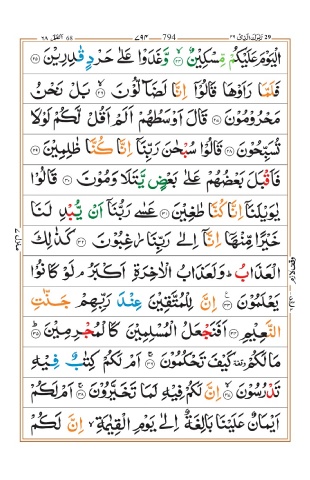 تبٰرك الذی ٢٩ 794 ٧٩٤ القلم ٦٨
الْيَوْمَ عَلَيْكُمْ مِّسْكِيْنٌ ۙ‏﴿۲۴﴾ وَّغَدَوْا عَلٰى حَرْدٍ قٰدِرِيْنَ ﴿۲۵﴾
فَلَمَّا رَاَوْهَا قَالُوْۤا اِنَّا لَضَآلُّوْنَ ۙ﴿۲۶﴾ بَلْ نَحْنُ
مَحْرُوْمُوْنَ ﴿۲۷﴾ قَالَ اَوْسَطُهُمْ اَلَمْ اَقُلْ لَّكُمْ لَوْلَا
تُسَبِّحُوْنَ ﴿۲۸﴾ قَالُوْا سُبْحٰنَ رَبِّنَاۤ اِنَّا كُنَّا ظٰلِمِيْنَ ﴿۲۹﴾
فَاَقْبَلَ بَعْضُهُمْ عَلٰى بَعْضٍ يَّتَلَاوَمُوْنَ ﴿۳۰﴾ قَالُوْا
يٰوَيْلَنَاۤ اِنَّا كُنَّا طٰغِيْنَ ﴿۳۱﴾ عَسٰى رَبُّنَاۤ اَنْ يُّبْدِلَنَا
خَيْرًا مِّنْهَاۤ اِنَّاۤ اِلٰى رَبِّنَا رٰغِبُوْنَ ﴿۳۲﴾ كَذٰلِكَ
الْعَذَابُ ؕ وَلَعَذَابُ الْاٰخِرَةِ اَكْبَرُ ۘ لَوْ كَانُوْا
يَعْلَمُوْنَ ﴿۳۳﴾ اِنَّ لِلْمُتَّقِيْنَ عِنْدَ رَبِّهِمْ جَنّٰتِ
النَّعِيْمِ ﴿۳۴﴾ اَفَنَجْعَلُ الْمُسْلِمِيْنَ كَالْمُجْرِمِيْنَ ؕ﴿۳۵﴾
مَا لَكُمْ وقفة كَيْفَ تَحْكُمُوْنَ ۚ﴿۳۶﴾ اَمْ لَكُمْ كِتٰبٌ فِيْهِ
تَدْرُسُوْنَ ۙ﴿۳۷﴾ اِنَّ لَكُمْ فِيْهِ لَمَا تَخَيَّرُوْنَ ۚ﴿۳۸﴾ اَمْ لَكُمْ
اَيْمَانٌ عَلَيْنَا بَالِغَةٌ اِلٰى يَوْمِ الْقِيٰمَةِ ۙ اِنَّ لَكُمْ